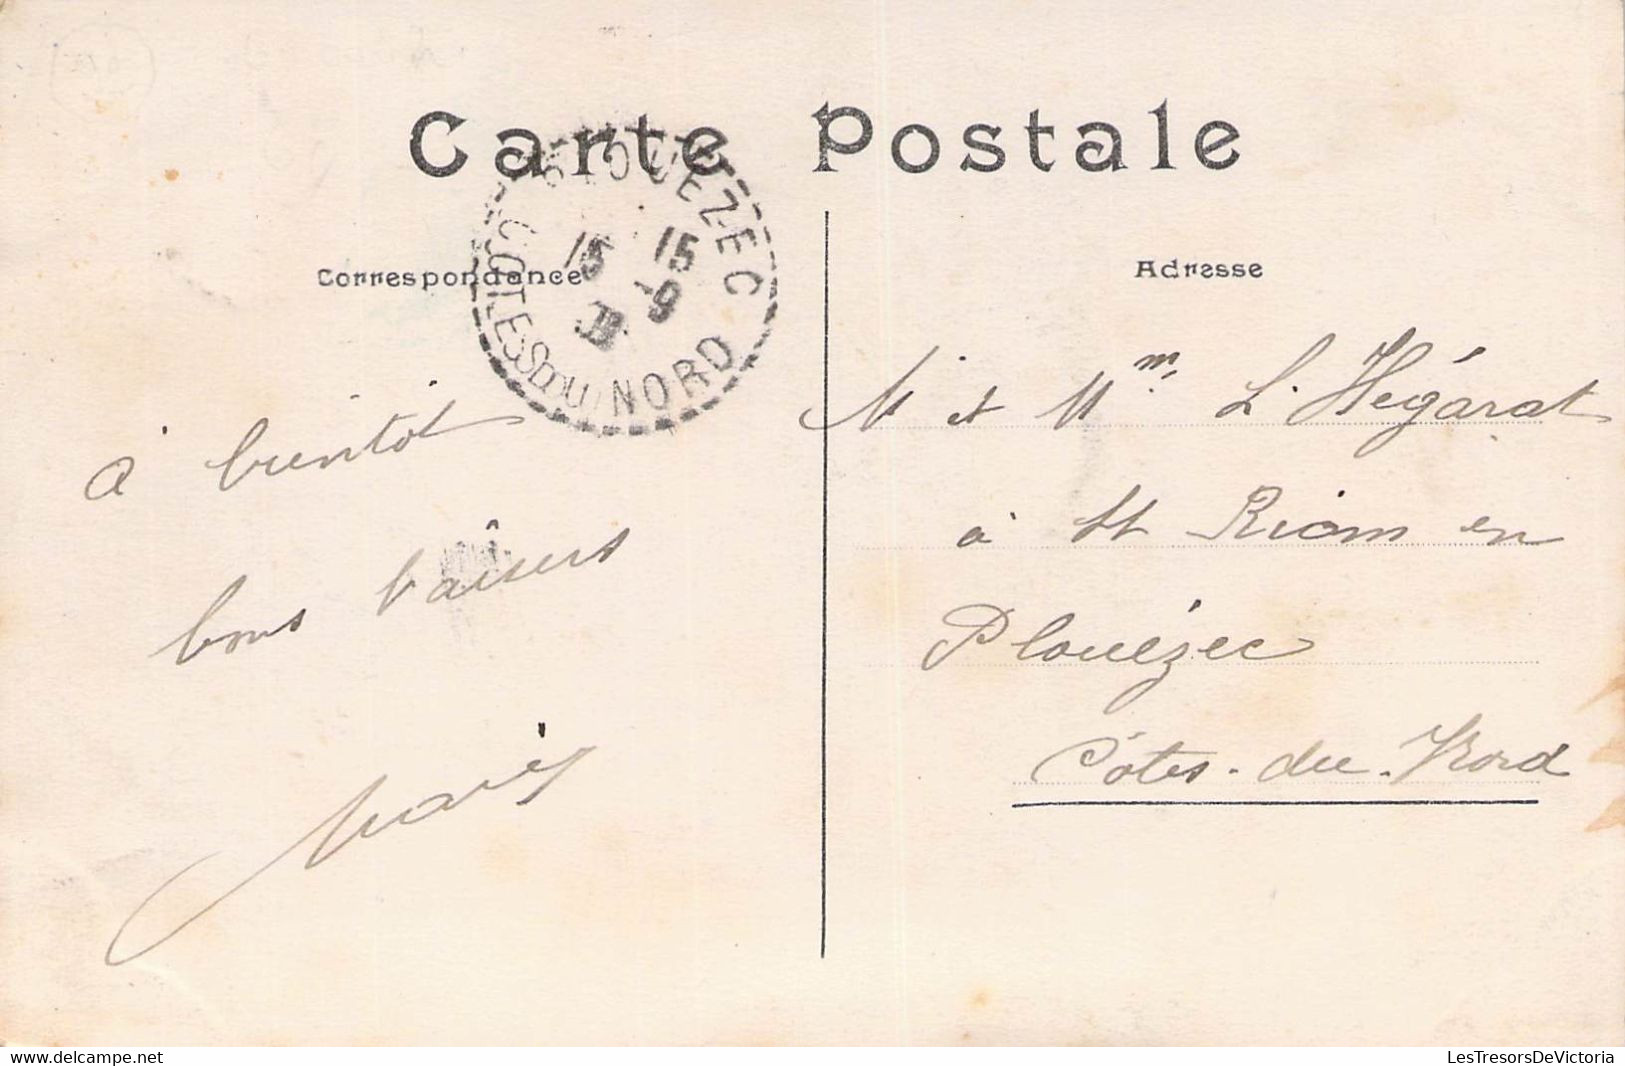 Carte Postale
Correspondance
Adresse
PLOUEZEC
15 15
9
COTES DU NORD
à bientôt
bons baîsers
Marie
M et Mme L'Hégarat
à St Riom en
Plouézec
Côtes-du-Nord
delcampe.net
LesTresorsDeVictoria